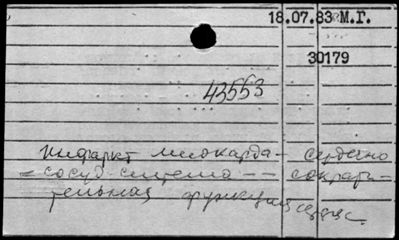 18.07.83 М.Г.
30179
43553
Инфаркт миокарда – сердечно
= сосуд. система – – сократи-
тельная функция сердца